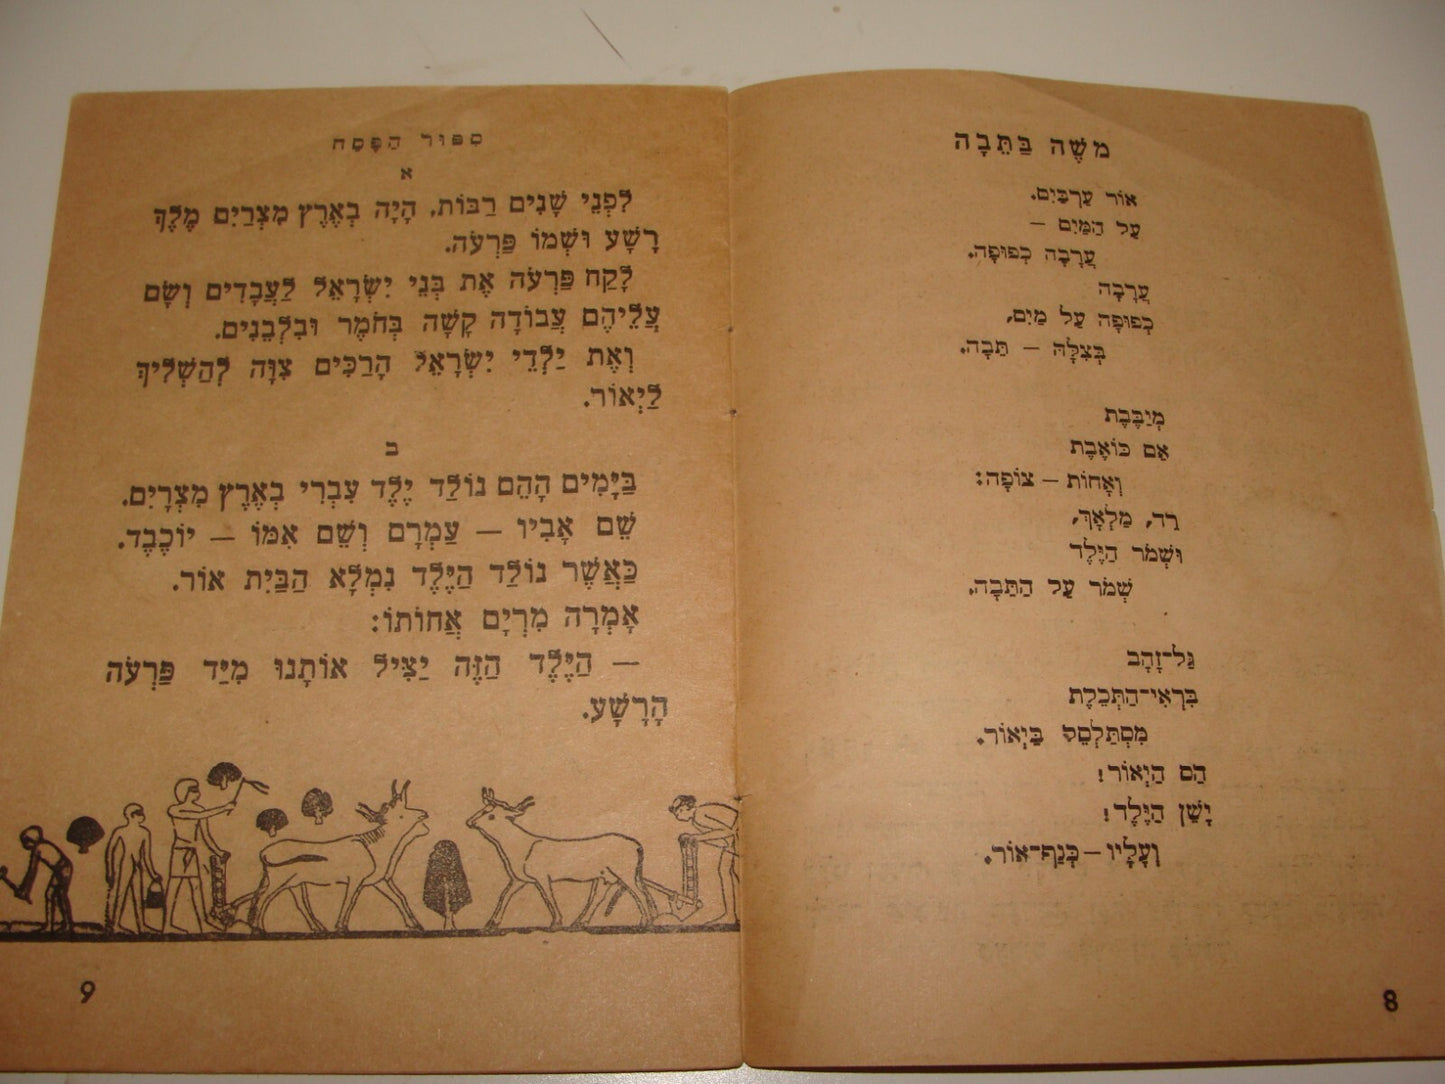 מֹשֶׁה בַּתֵּבָה
אוֹר עַרְבַּיִם.
עַל הַמַּיִם –
עֲרָבָה כְּפוּפָה.
עֲרָבָה
כְּפוּפָה עַל מַיִם,
בְּצִלָּהּ – תֵּבָה.
מְיַבֶּבֶת
אֵם כּוֹאֶבֶת
וְאָחוֹת – צוֹפָה:
רֵד, מַלְאָךְ,
וּשְׁמֹר הַיֶּלֶד
שְׁמֹר עַל הַתֵּבָה.
גַּל־זָהָב
בִּרְאִי־הַתְּכֵלֶת
מִסְתַּלְסֵל בַּיְאוֹר.
הַס הַיְאוֹר!
יָשֵׁן הַיֶּלֶד!
וְעָלָיו – כְּנַף־אוֹר.
8
סִפּוּר הַפֶּסַח
א
לִפְנֵי שָׁנִים רַבּוֹת, הָיָה בְּאֶרֶץ מִצְרַיִם מֶלֶךְ
רָשָׁע וּשְׁמוֹ פַּרְעֹה.
לָקַח פַּרְעֹה אֶת בְּנֵי יִשְׂרָאֵל לַעֲבָדִים וְשָׂם
עֲלֵיהֶם עֲבוֹדָה קָשָׁה בְּחֹמֶר וּבִלְבֵנִים.
וְאֶת יַלְדֵי יִשְׂרָאֵל הָרַכִּים צִוָּה לְהַשְׁלִיךְ
לַיְאוֹר.
ב
בַּיָּמִים הָהֵם נוֹלַד יֶלֶד עִבְרִי בְּאֶרֶץ מִצְרָיִם.
שֵׁם אָבִיו – עַמְרָם וְשֵׁם אִמּוֹ – יוֹכֶבֶד.
כַּאֲשֶׁר נוֹלַד הַיֶּלֶד נִמְלָא הַבַּיִת אוֹר.
אָמְרָה מִרְיָם אֲחוֹתוֹ:
– הַיֶּלֶד הַזֶּה יַצִּיל אוֹתָנוּ מִיַּד פַּרְעֹה
הָרָשָׁע.
9